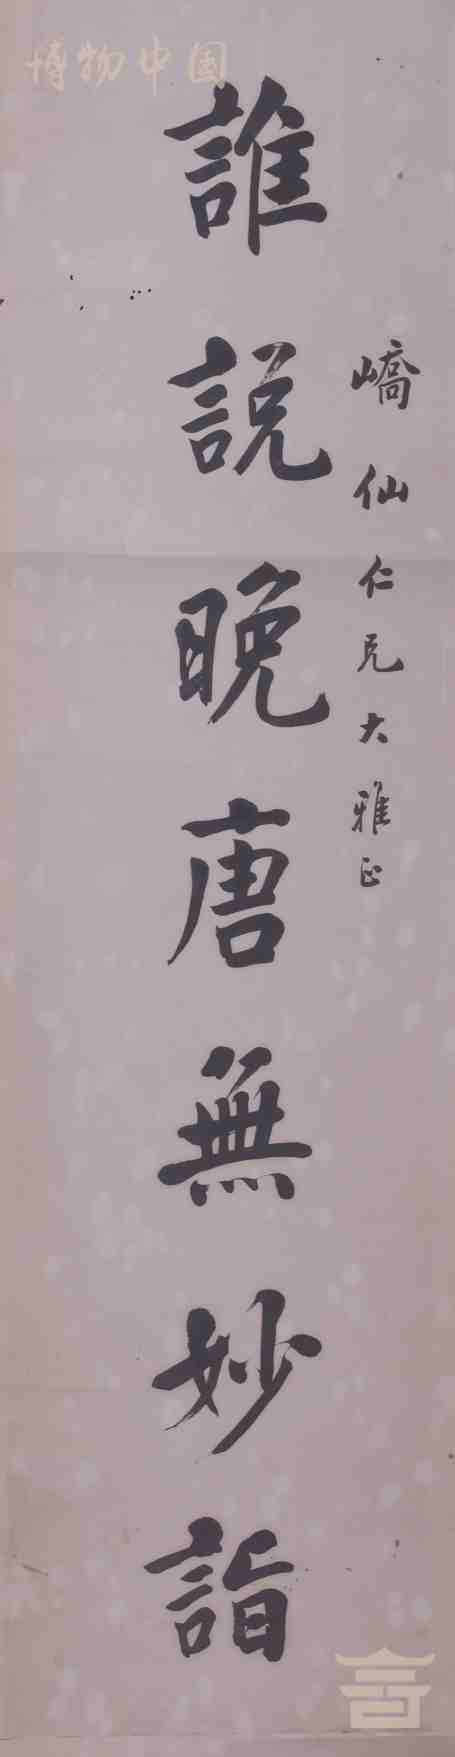 博物中国
嶠仙仁兄大雅正
誰説晚唐無妙詣